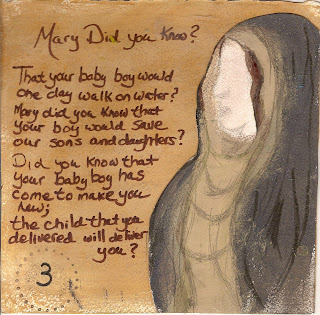 Mary Did you know?
That your baby boy would
one day walk on water?
Mary did you know that
your boy would save
our sons and daughters?
Did you know that
your baby boy has
come to make you
new;
the child that you
delivered will deliver
you?
3